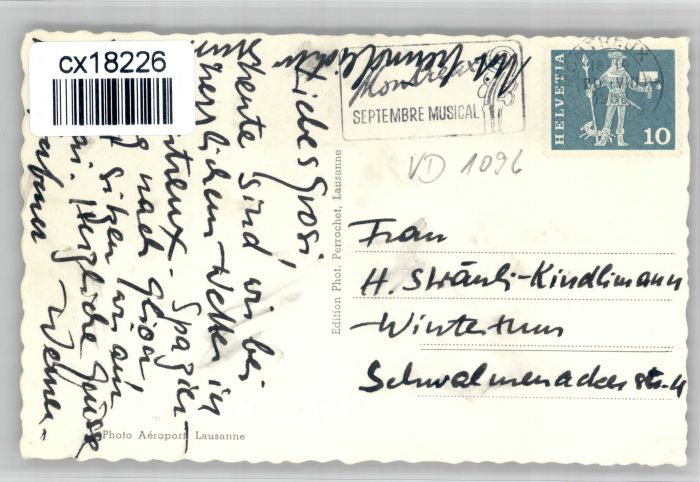 cx18226
Montreux
SEPTEMBRE MUSICAL
MONTREUX
HELVETIA
10
VD 1096
Liebes Grosi
heute sind wir bei
herrlichem Wetter in
Spazier-
nach Glion
sitzen wir am
Herzliche Grüsse
Werner
Edition Phot. Perrochet, Lausanne
Photo Aéroport Lausanne
Frau
H. Sträuli-Kindlimann
Winterthur
Schwalmenackerstr. 4